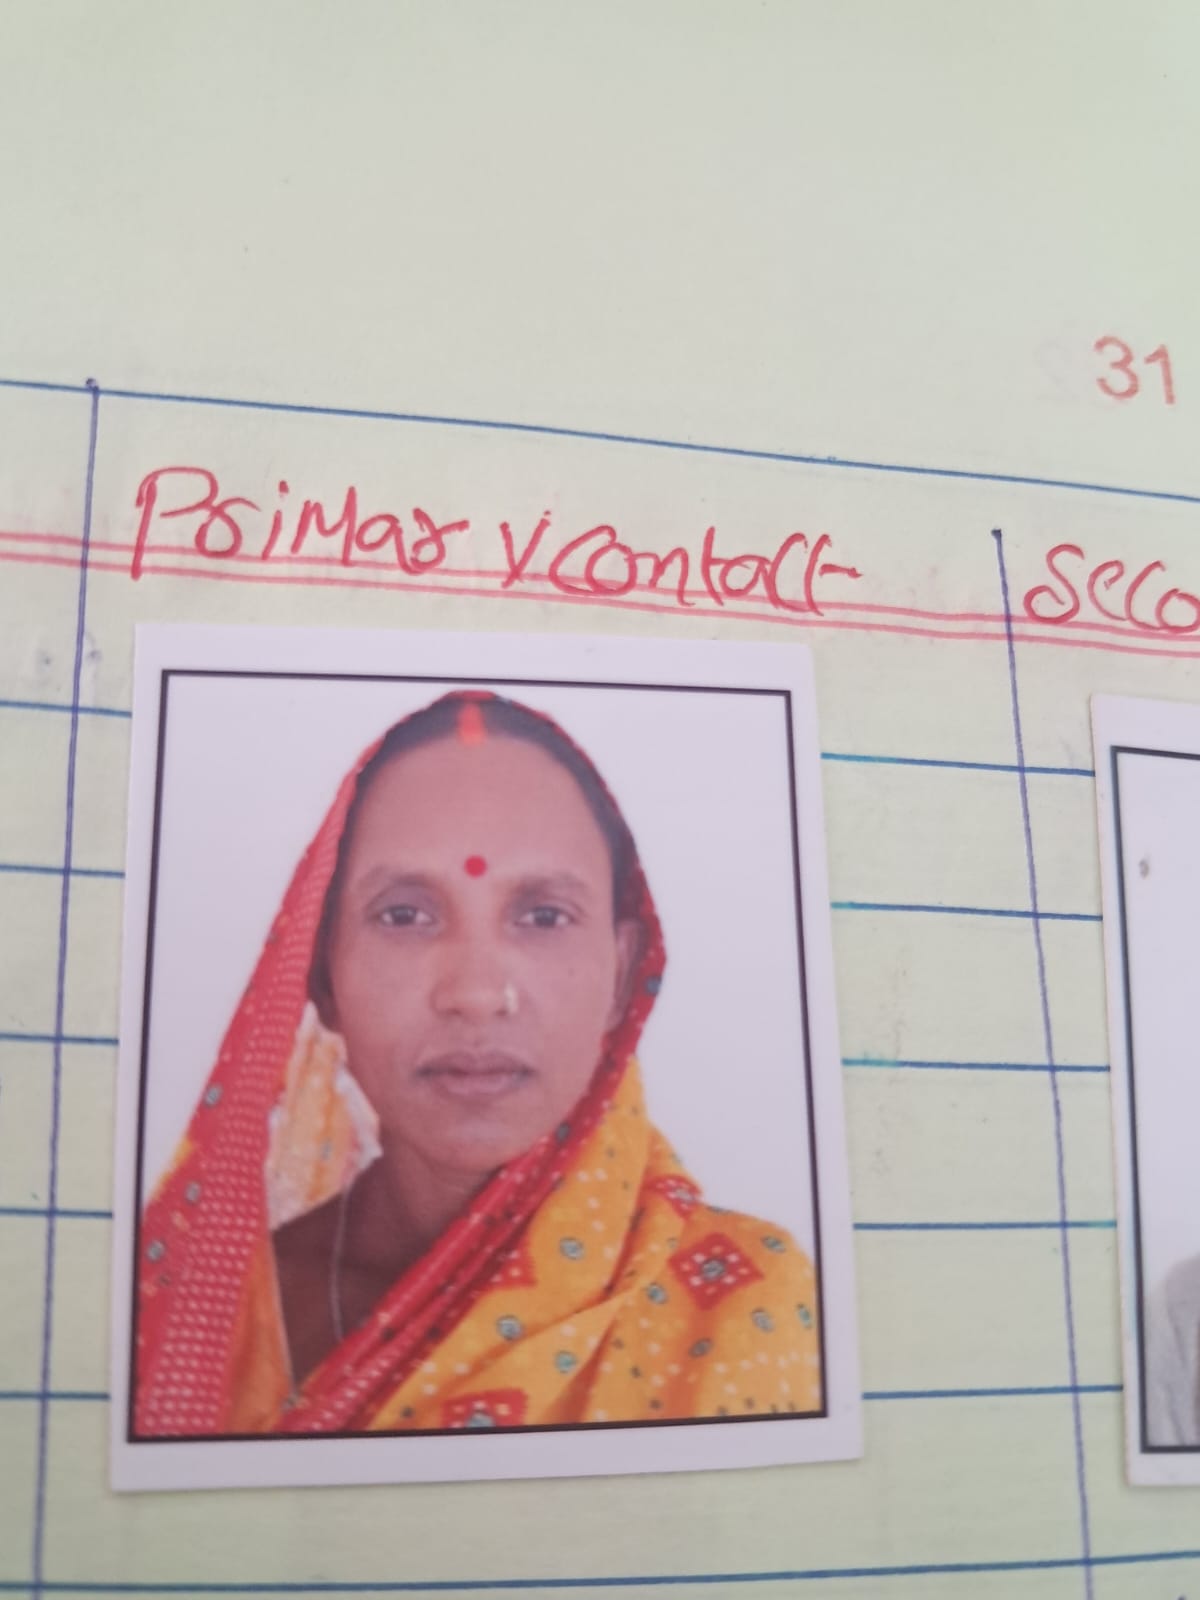 31
Primary Contact
Seco